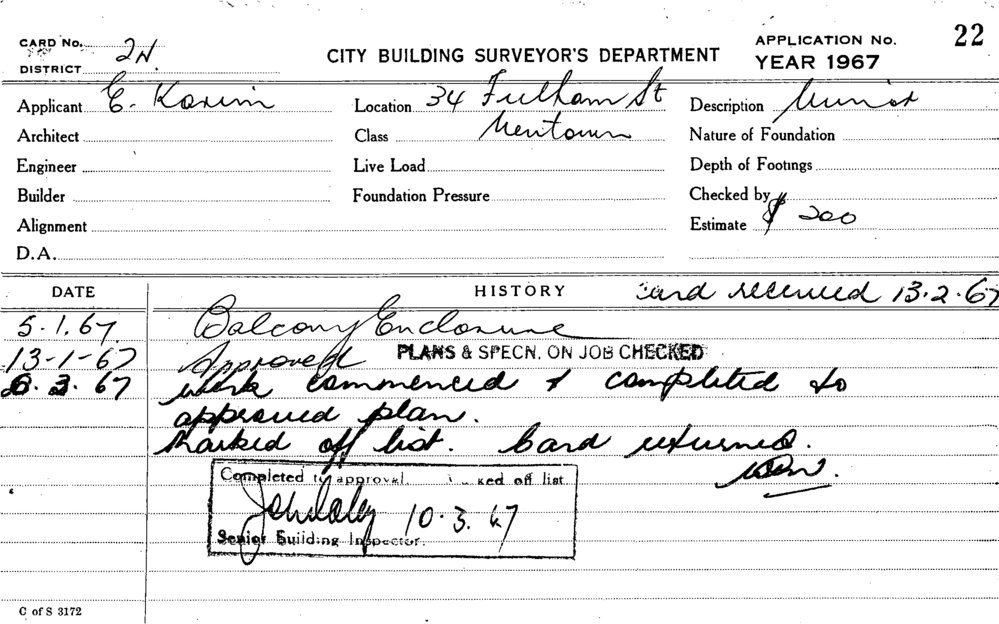 CARD No. 2N. CITY BUILDING SURVEYOR'S DEPARTMENT APPLICATION No. 22
DISTRICT YEAR 1967
Applicant E. Karim Location 34 Fulham St Description Minor
Architect Class Newtown Nature of Foundation
Engineer Live Load Depth of Footings
Builder Foundation Pressure Checked by
Alignment Estimate $ 200
D.A.
DATE HISTORY Card received 13.2.67
5.1.67. Balcony Enclosure
13-1-67 Approved PLANS & SPECN. ON JOB CHECKED
8.3.67 work commenced & completed to
approved plan.
Marked off list. Card returned.
Completed to approval. ked off list
10.3.67
Senior Building Inspector.
C of S 3172